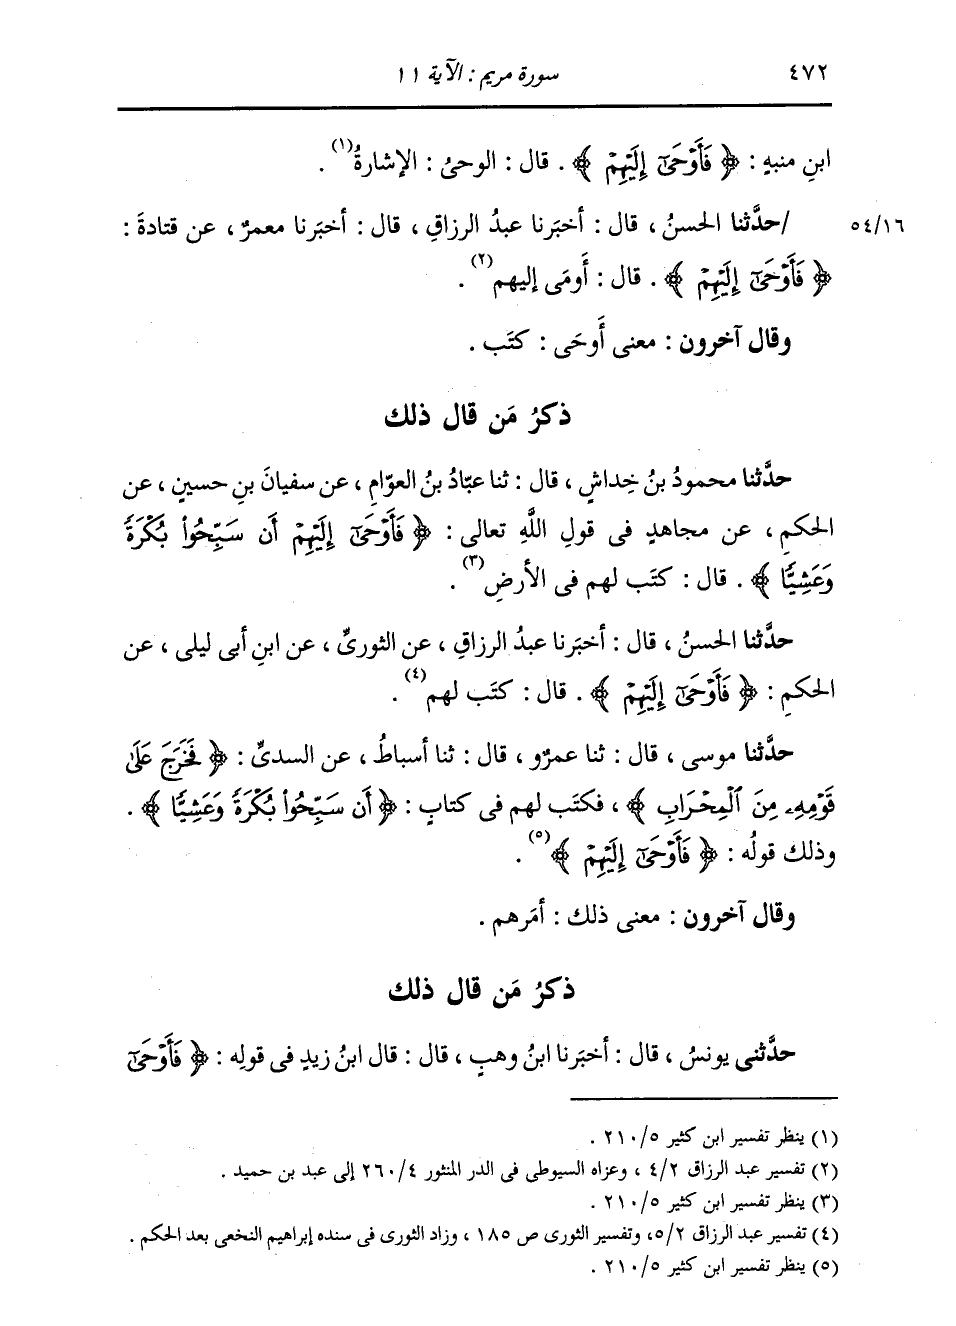 ٤٧٢ سورة مريم : الآية ١١
ابنِ منبهٍ : ﴿ فَأَوْحَىٰٓ إِلَيْهِمْ ﴾ . قال : الوحىُ : الإشارةُ(١) .
٥٤/١٦ /حدَّثنا الحسنُ ، قال : أخبَرنا عبدُ الرزاقِ ، قال : أخبَرنا معمرٌ ، عن قتادةَ :
﴿ فَأَوْحَىٰٓ إِلَيْهِمْ ﴾ . قال : أَومَى إليهم(٢) .
وقال آخرون : معنى أَوحَى : كتَب .
ذكرُ مَن قال ذلك
حدَّثنا محمودُ بنُ خِداشٍ ، قال : ثنا عبّادُ بنُ العوّامِ ، عن سفيانَ بنِ حسينٍ ، عن
الحكمِ ، عن مجاهدٍ فى قولِ اللَّهِ تعالى : ﴿ فَأَوْحَىٰٓ إِلَيْهِمْ أَن سَبِّحُوا۟ بُكْرَةً
وَعَشِيًّا ﴾ . قال : كتَب لهم فى الأرضِ(٣) .
حدَّثنا الحسنُ ، قال : أخبَرنا عبدُ الرزاقِ ، عن الثورىِّ ، عن ابنِ أبى ليلى ، عن
الحكمِ : ﴿ فَأَوْحَىٰٓ إِلَيْهِمْ ﴾ . قال : كتَب لهم(٤) .
حدَّثنا موسى ، قال : ثنا عمرٌو ، قال : ثنا أسباطُ ، عن السدىِّ : ﴿ فَخَرَجَ عَلَىٰ
قَوْمِهِۦ مِنَ ٱلْمِحْرَابِ ﴾ ، فكتَب لهم فى كتابٍ : ﴿ أَن سَبِّحُوا۟ بُكْرَةً وَعَشِيًّا ﴾ .
وذلك قولُه : ﴿ فَأَوْحَىٰٓ إِلَيْهِمْ ﴾(٥) .
وقال آخرون : معنى ذلك : أمَرهم .
ذكرُ مَن قال ذلك
حدَّثنى يونسُ ، قال : أخبَرنا ابنُ وهبٍ ، قال : قال ابنُ زيدٍ فى قولِه : ﴿ فَأَوْحَىٰٓ
(١) ينظر تفسير ابن كثير ٢١٠/٥ .
(٢) تفسير عبد الرزاق ٤/٢ ، وعزاه السيوطى فى الدر المنثور ٢٦٠/٤ إلى عبد بن حميد .
(٣) ينظر تفسير ابن كثير ٢١٠/٥ .
(٤) تفسير عبد الرزاق ٥/٢، وتفسير الثورى ص ١٨٥ ، وزاد الثورى فى سنده إبراهيم النخعى بعد الحكم .
(٥) ينظر تفسير ابن كثير ٢١٠/٥ .